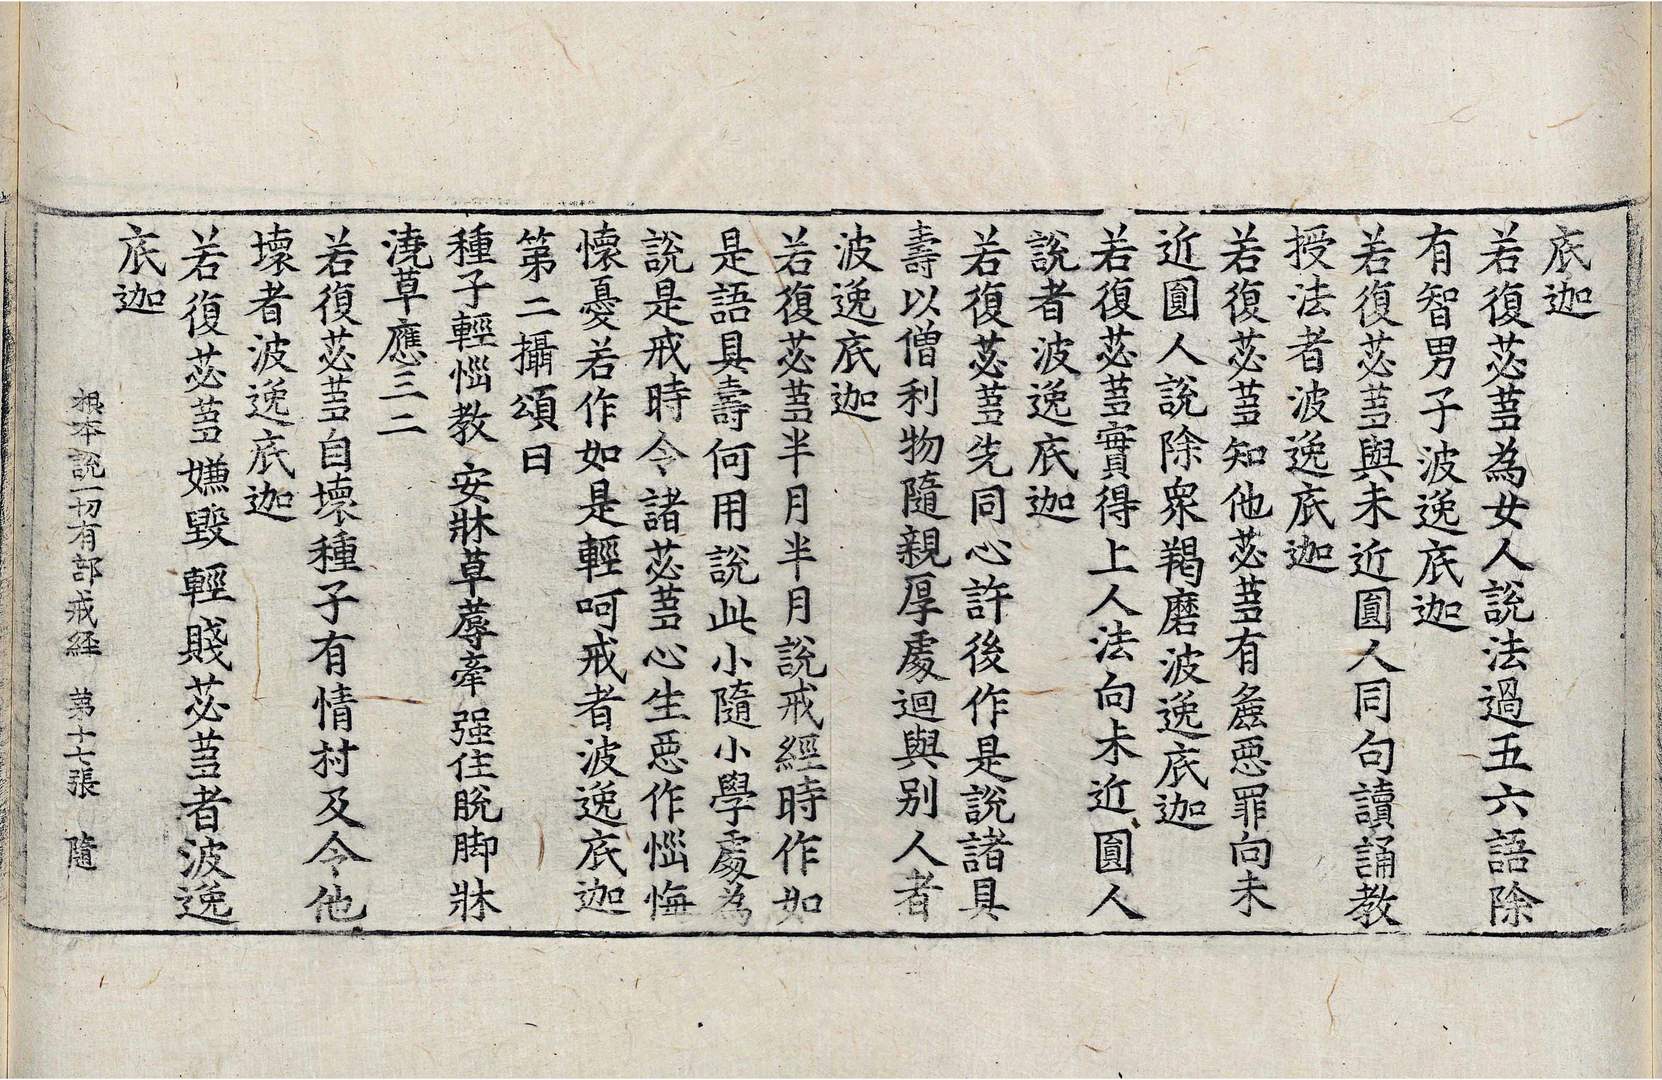 底迦
若復苾芻為女人說法過五六語除
有智男子波逸底迦
若復苾芻與未近圓人同句讀誦教
授法者波逸底迦
若復苾芻知他苾芻有麁惡罪向未
近圓人說除衆羯磨波逸底迦
若復苾芻實得上人法向未近圓人
說者波逸底迦
若復苾芻先同心許後作是說諸具
壽以僧利物隨親厚處迴與別人者
波逸底迦
若復苾芻半月半月說戒經時作如
是語具壽何用說此小隨小學處為
說是戒時令諸苾芻心生惡作惱悔
懷憂若作如是輕呵戒者波逸底迦
第二攝頌曰
種子輕惱教 安牀草蓐牽 强住脫脚牀
澆草應三二
若復苾芻自壞種子有情村及令他
壞者波逸底迦
若復苾芻嫌毀輕賤苾芻者波逸
底迦
根本說一切有部戒経 第十七張 隨